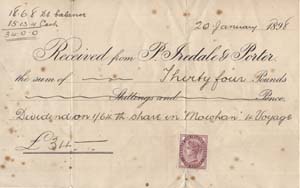 18.6.8 By balance
15.13.4 Cash
34.0.0
20 January 1898
Received from P. Iredale & Porter
the sum of Thirty four Pounds
Shillings and Pence
Dividend on 1/64th share in "Mowhan" 4 Voyage
£34